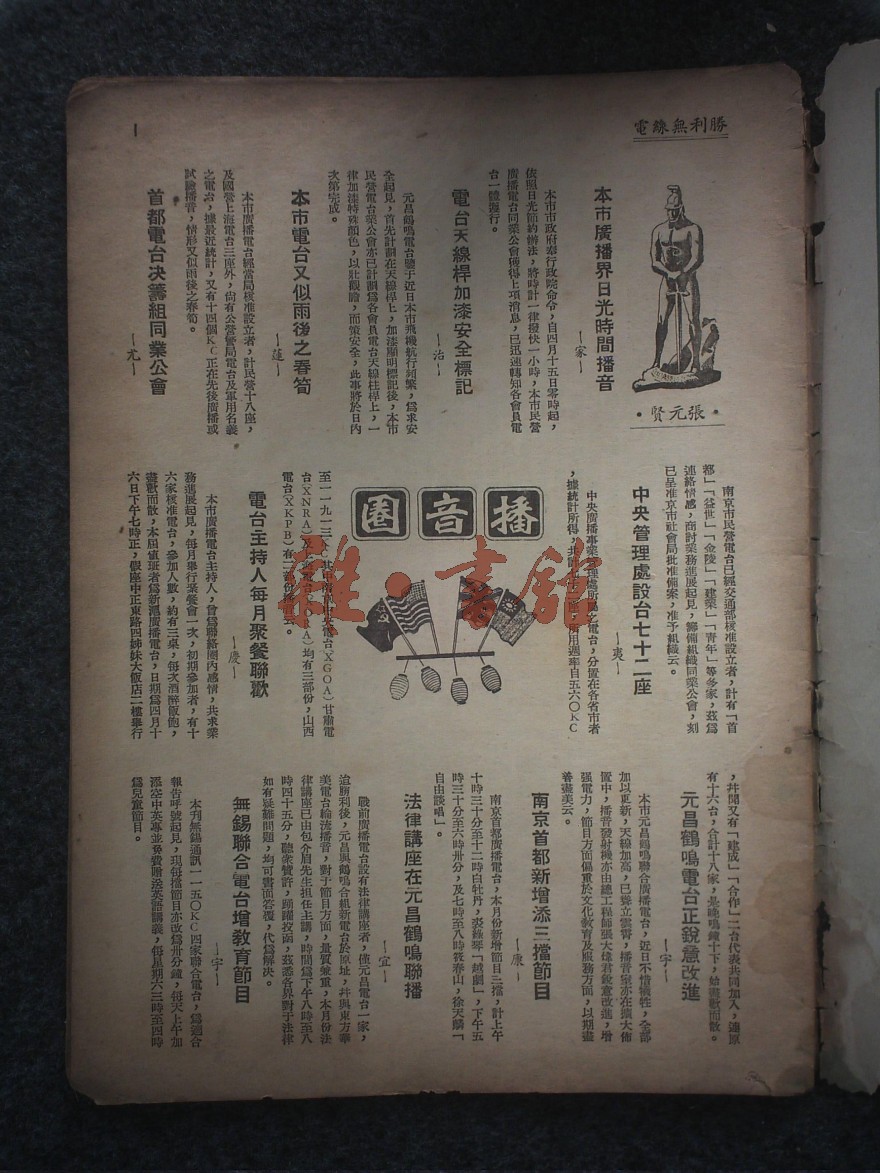 勝利無線電
1
張元賢
本市廣播界日光時間播音
—家—
本市市政府奉行政院命令，自四月十五日零時起，
依照日光節約辦法，將時計一律撥快一小時，本市民營
廣播電台同業公會獲得上項消息，已迅速轉知各會員電
台一體遵行。
電台天線桿加漆安全標記
—治—
元昌鶴鳴電台鑒于近日本市飛機航行頻繁，爲求安
全起見，首先計劃在天線桿上，加漆顯明標記後，本市
民營電台業公會亦已計劃爲各會員電台天線桂桿上，一
律加漆特殊顏色，以壯觀瞻，而策安全，此事將於日內
次第完成。
本市電台又似雨後之春筍
—蓮—
本市廣播電台經當局核准設立者，計民營十八座，
及國營上海電台三座外，尙有公營警局電台及軍用名義
之電台，據最近統計，又有十四個KC正在先後廣播或
試驗播音，情形又似雨後之春筍。
首都電台决籌組同業公會
—尤—
南京市民營電台已經交通部核准設立者，計有「首
都」「益世」「金陵」「建業」「青年」等多家，茲爲
連絡情感，商討業務進展起見，籌備組織同業公會，刻
已呈准京市社會局批准備案，准予組織云。
中央管理處設台七十二座
—夷—
中央廣播事業管理處所屬之電台，分置在各省市者
，據統計所得，共
用週率自五六〇KC
播音圈
至一一九一三KC
電台（XGOA）甘肅電
台（XNRA）及
均有三部份，山西
電台（XKPB）有二部份播音云。
電台主持人每月聚餐聯歡
—慶—
本市廣播電台主持人，曾爲聯絡圈內感情，共求業
務進展起見，每月舉行聚餐會一次，初期參加者，有十
六家核准電台，參加人數，約有三桌，每次酒醉飯飽，
盡歡而散，本屆值班者爲新滬廣播電台，日期爲四月十
六日下午七時正，假座中正東路四姊妹大飯店二樓舉行
，幷聞又有「建成」「合作」二台代表共同加入，連原
有十六台，合計十八家，是晚鳴鐘十下，始盡歡而散。
元昌鶴鳴電台正銳意改進
—宇—
本市元昌鶴鳴聯合廣播電台，近日不惜犧牲，全部
加以更新，天線加高，已聳立雲霄，播音室亦在擴大佈
置中，播音發射機亦由總工程師張大煒君銳意改進，增
强電力，節目方面偏重於文化教育及服務方面，以期盡
善盡美云。
南京首都新增添三擋節目
—康—
南京首都廣播電台，本月份新增節目三擋，計上午
十時三十分至十二時白牡丹，裘綠琴「越劇」，下午五
時三十分至六時卅分，及七時至八時筱春山，徐天麟「
自由談唱」。
法律講座在元昌鶴鳴聯播
—宜—
戰前廣播電台設有法律講座者，僅元昌電台一家，
迨勝利後，元昌與鶴鳴合組新電台於原址，幷與東方華
美電台輪流播音，對于節目方面，量質兼重，本月份法
律講座已由包介眉先生担任主講，時間爲下午八時至八
時四十五分，聽衆贊許，踴躍投函，茲悉各界對于法律
如有疑難問題，均可書面答覆，代爲解决。
無錫聯合電台增教育節目
—宇—
本刊無錫通訊一一五〇KC四家聯合電台，爲適合
報告呼號起見，現每擋節目亦改爲卅分鐘，每天上午加
添空中英專並免費贈送英語講義，每星期六三時至四時
爲兒童節目。
雜·書館